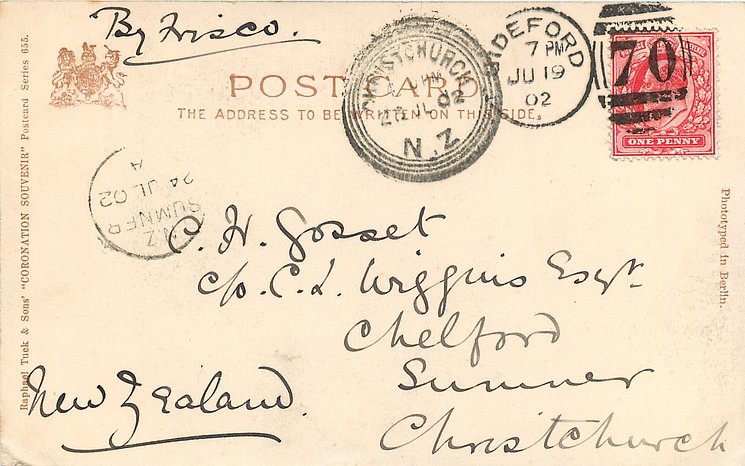 By Frisco.
POST CARD
THE ADDRESS TO BE WRITTEN ON THIS SIDE.
CHRISTCHURCH
JL 02
N.Z
BIDEFORD
7 PM
JU 19
02
70
ONE PENNY
A
24 JL 02
SUMNER
NZ
C. H. Gosset
c/o. C. L. Wiggins Esqr.
Chelford
Sumner
Christchurch
New Zealand.
Raphael Tuck & Sons' "CORONATION SOUVENIR" Postcard Series 655.
Phototyped in Berlin.